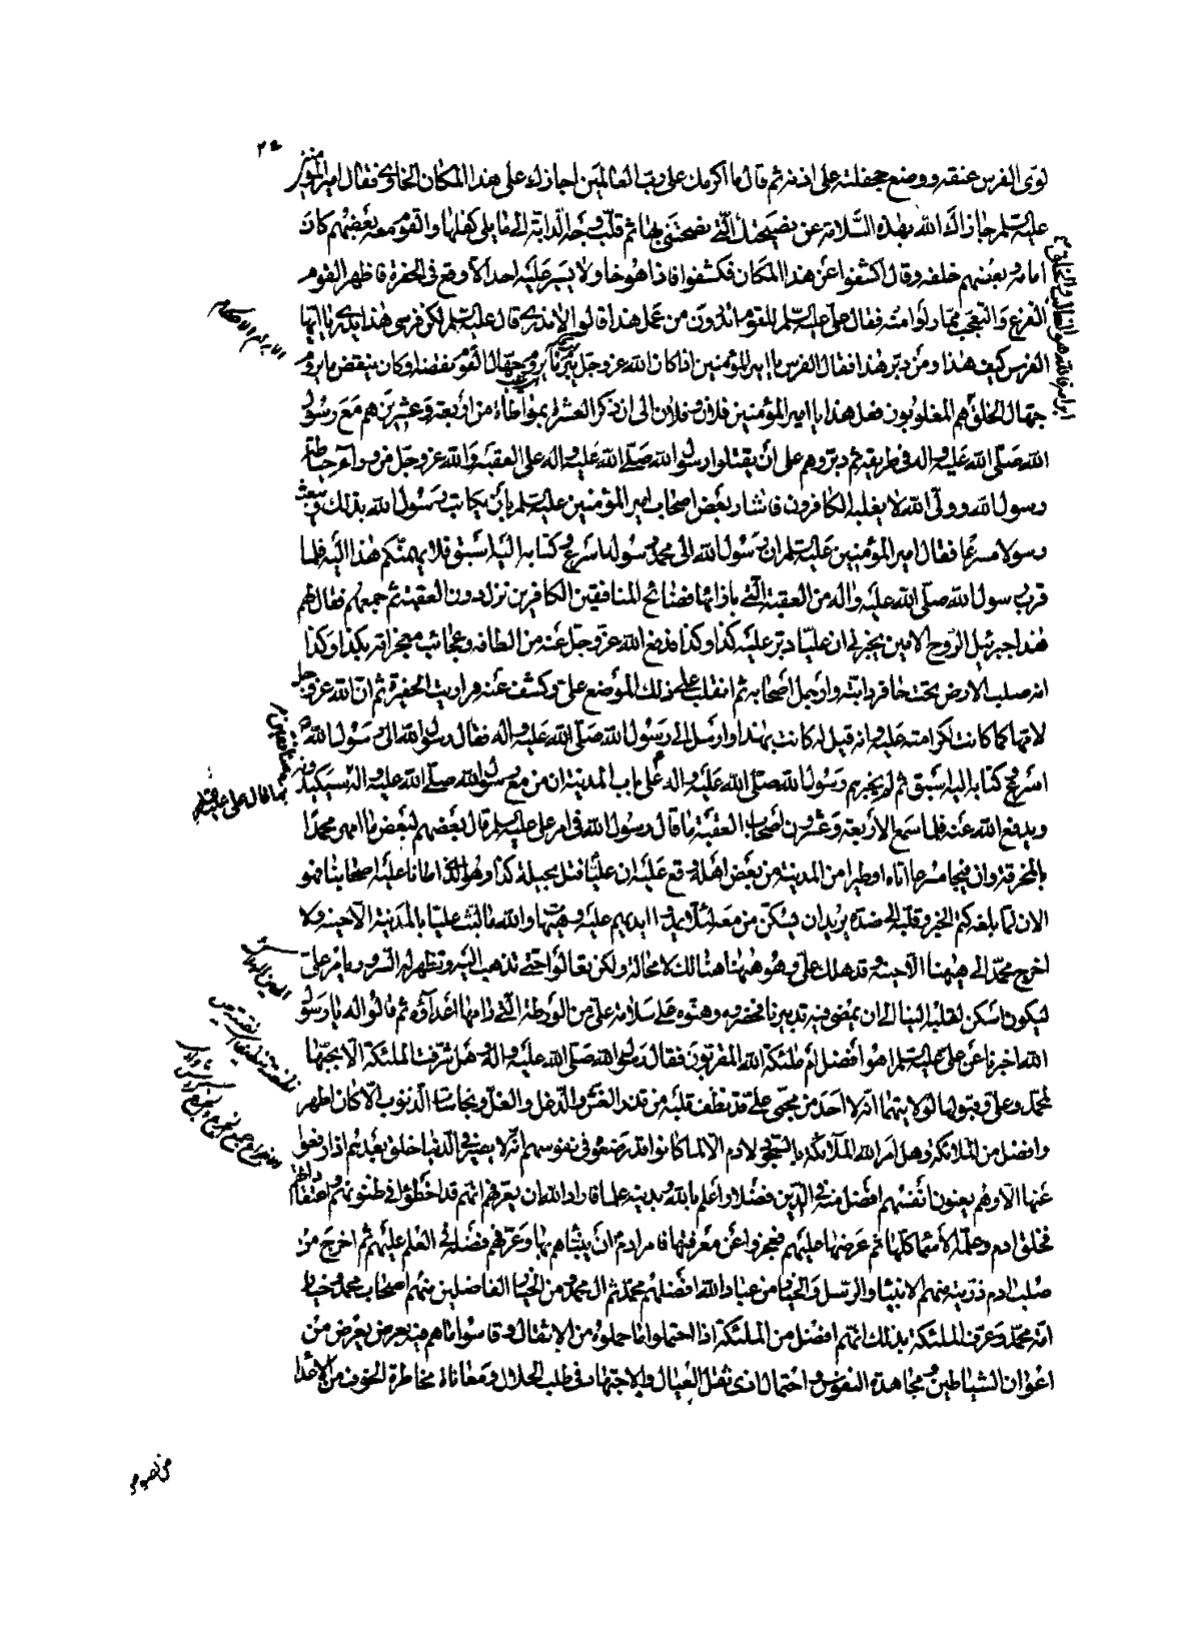 ٢٤
لوى الفرس عنقه ووضع جحفلته على اذنه ثم قال ما اكرمك على رب العالمين اجازك على هذا المكان الخاوي فقال امير المؤمنين
عليه السلم جازاك الله بهذه السلامة عن نصيحتك التي نصحتني بها ثم قلب وجه الدابة الى ما يلي كفلها والقوم معه بعضهم كان
امامه وبعضهم خلفه وقال اكشفوا عن هذا المكان فكشفوا فاذا هو خاو ولا يسير عليه احد الا وقع في الحفرة فاظهر القوم
الفزع والتعجب مما راوا منه فقال علي عليه السلم للقوم اتدرون من عمل هذا قالوا لا ندري قال عليه السلم لكن فرسي هذا يدري يا ايها
الفرس كيف هذا ومن دبر هذا فقال الفرس يا امير المؤمنين اذا كان الله عز وجل يبرم ما يروم جهال القوم نقضه او كان ينقض ما يروم
جهال الخلق هم المغلوبون فعل هذا يا امير المؤمنين فلان وفلان الى ان ذكر العشرة بمواطاة من اربعة وعشرين هم مع رسول
الله صلى الله عليه واله في طريقه ثم دبروهم على ان يقتلوا رسول الله صلى الله عليه واله على العقبة والله عز وجل من وراء حياطة
رسول الله وولي الله لا يغلبه الكافرون فاشار بعض اصحاب امير المؤمنين عليه السلم بان يكاتب رسول الله بذلك ويبعث
رسولا مسرعا فقال امير المؤمنين عليه السلم ان رسول الله الى محمد رسوله اسرع وكتابه اليه اسبق فلا يهمنكم هذا اليه فلما
قرب رسول الله صلى الله عليه واله من العقبة التي بازائها فضائح المنافقين الكافرين نزل دون العقبة ثم جمعهم فقال لهم
هذا جبرئيل الروح الامين يخبرني ان عليا دبر عليه كذا وكذا فدفع الله عز وجل عنه من الطافه وعجائب معجزاته بكذا وكذا
انه صلب الارض تحت حافر دابته وارجل اصحابه ثم انقلب على ذلك الموضع علي وكشف عنه فرايت الحفيرة ثم ان الله عز وجل
لامها كما كانت لكرامته عليه وانه قيل له كاتب بهذا وارسل الى رسول الله صلى الله عليه واله فقال رسول الله الى رسول الله
اسرع وكتابه اليه اسبق ثم لم يخبرهم رسول الله صلى الله عليه واله على باب المدينة ان من مع رسول الله صلى الله عليه واله سيكيدونه
ويدفع الله عنه فلما سمع الاربعة وعشرون اصحاب العقبة ما قال رسول الله في امر علي عليه السلم قال بعضهم لبعض ما امهر محمدا
بالمخرقة وان فيجا مسرعا اتاه او طيرا من المدينة من بعض اهله وقع عليه ان عليا قتل بحيلة كذا وهو الذي واطانا عليه اصحابنا فهو
الان لما بلغه كتم الخبر وقلبه الى ضده يريد ان يسكن من معه لئلا يمدوا ايديهم عليه وهيهات والله ما لبث عليا بالمدينة الا حينه ولا
اخرج محمدا الى هيهنا الا حينه وقد هلك علي وهو هيهنا هالك لا محالة ولكن تعالوا حتى نذهب اليه ونظهر له السرور بامر علي
ليكون اسكن لقلبه الينا الى ان يمضي فيه تدبيرنا فحضروه وهنوه على سلامة علي من الورطة التي رامها اعداؤه ثم قالوا له يا رسول
الله اخبرنا عن علي عليه السلم اهو افضل ام ملئكة الله المقربون فقال رسول الله صلى الله عليه واله وهل شرفت الملئكة الا بحبها
لمحمد وعلي وقبولها لولايتهما انه لا احد من محبي علي قد نظف قلبه من قذر الغش والدغل والغل ونجاسات الذنوب الا كان اطهر
وافضل من الملائكة وهل امر الله الملائكة بالسجود لادم الا لما كانوا قد وضعوه في نفوسهم انه لا يصير في الدنيا خلق بعدهم اذا رفعوا
عنها الا وهم يعنون انفسهم افضل منه في الدين فضلا واعلم بالله وبدينه علما فاراد الله ان يعرفهم انهم قد اخطؤا في ظنونهم واعتقاداتهم
فخلق ادم وعلمه الاسماء كلها ثم عرضها عليهم فعجزوا عن معرفتها فامر ادم ان ينبئهم بها وعرفهم فضله في العلم عليهم ثم اخرج من
صلب ادم ذريته منهم الانبياء والرسل والخيار من عباد الله افضلهم محمد ثم ال محمد ومن الخيار الفاضلين منهم اصحاب محمد وخيار
امة محمد وعرف الملئكة بذلك انهم افضل من الملئكة اذا احتملوا ما حملوه من الاثقال وقاسوا ما هم فيه بعرض يعرض من
اعوان الشياطين ومجاهدة النفوس واحتمال اذى ثقل العيال والاجتهاد في طلب الحلال ومعاناة مخاطرة الخوف من الاعداء